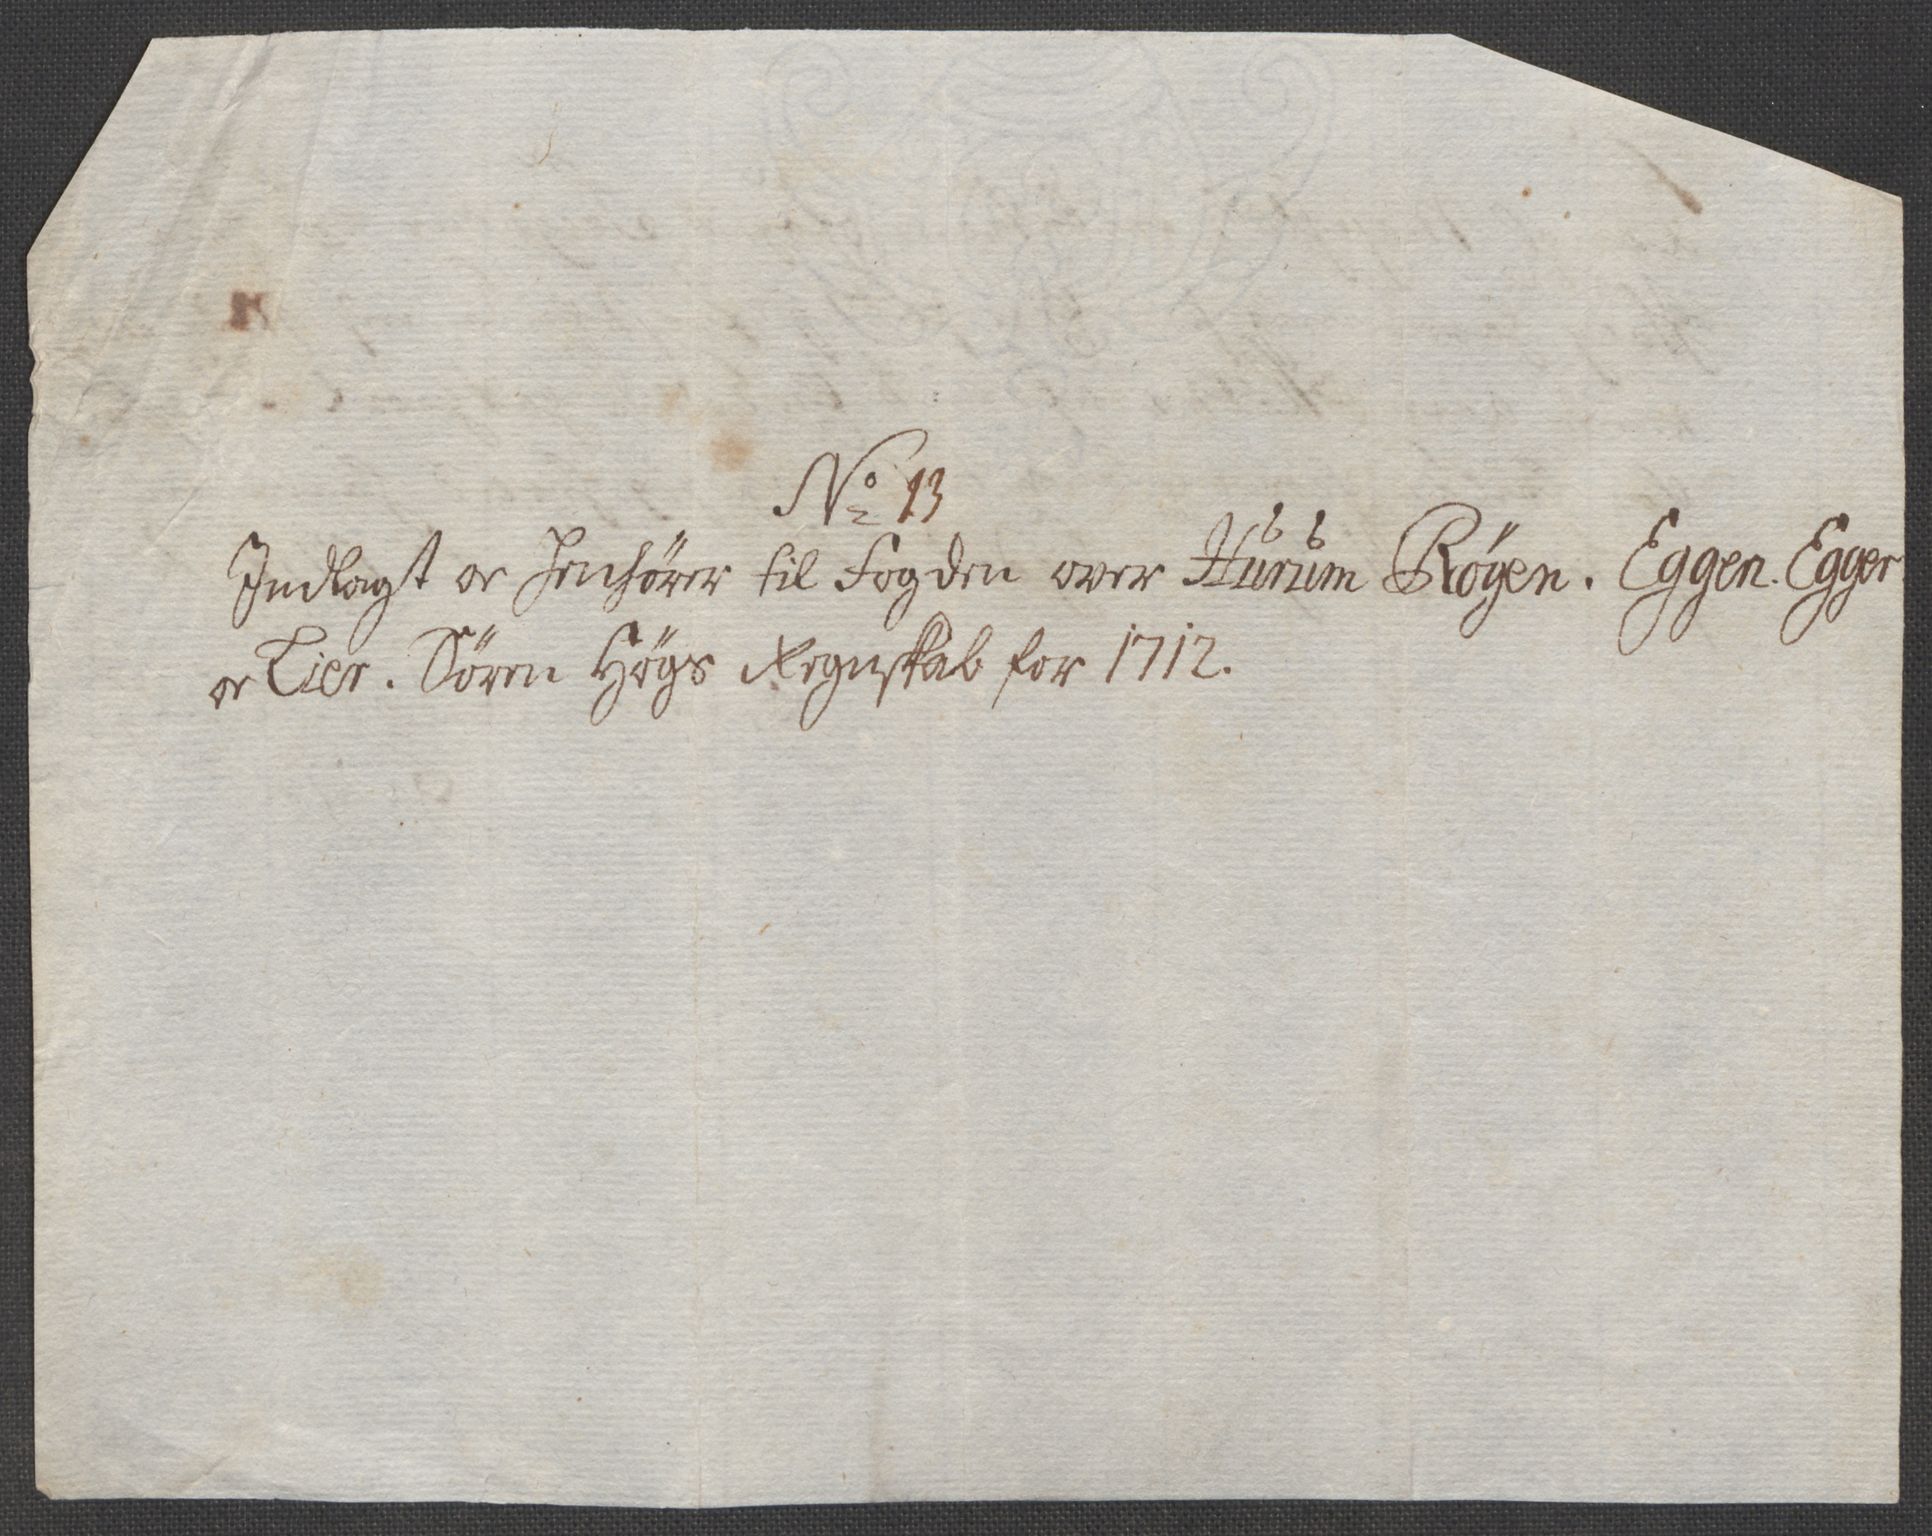 No 13
Indlagt oc henhører til Fogden over Hurum Røyen. Eggen. Eger
oc Lier. Søren Høgs Regnskab for 1712.